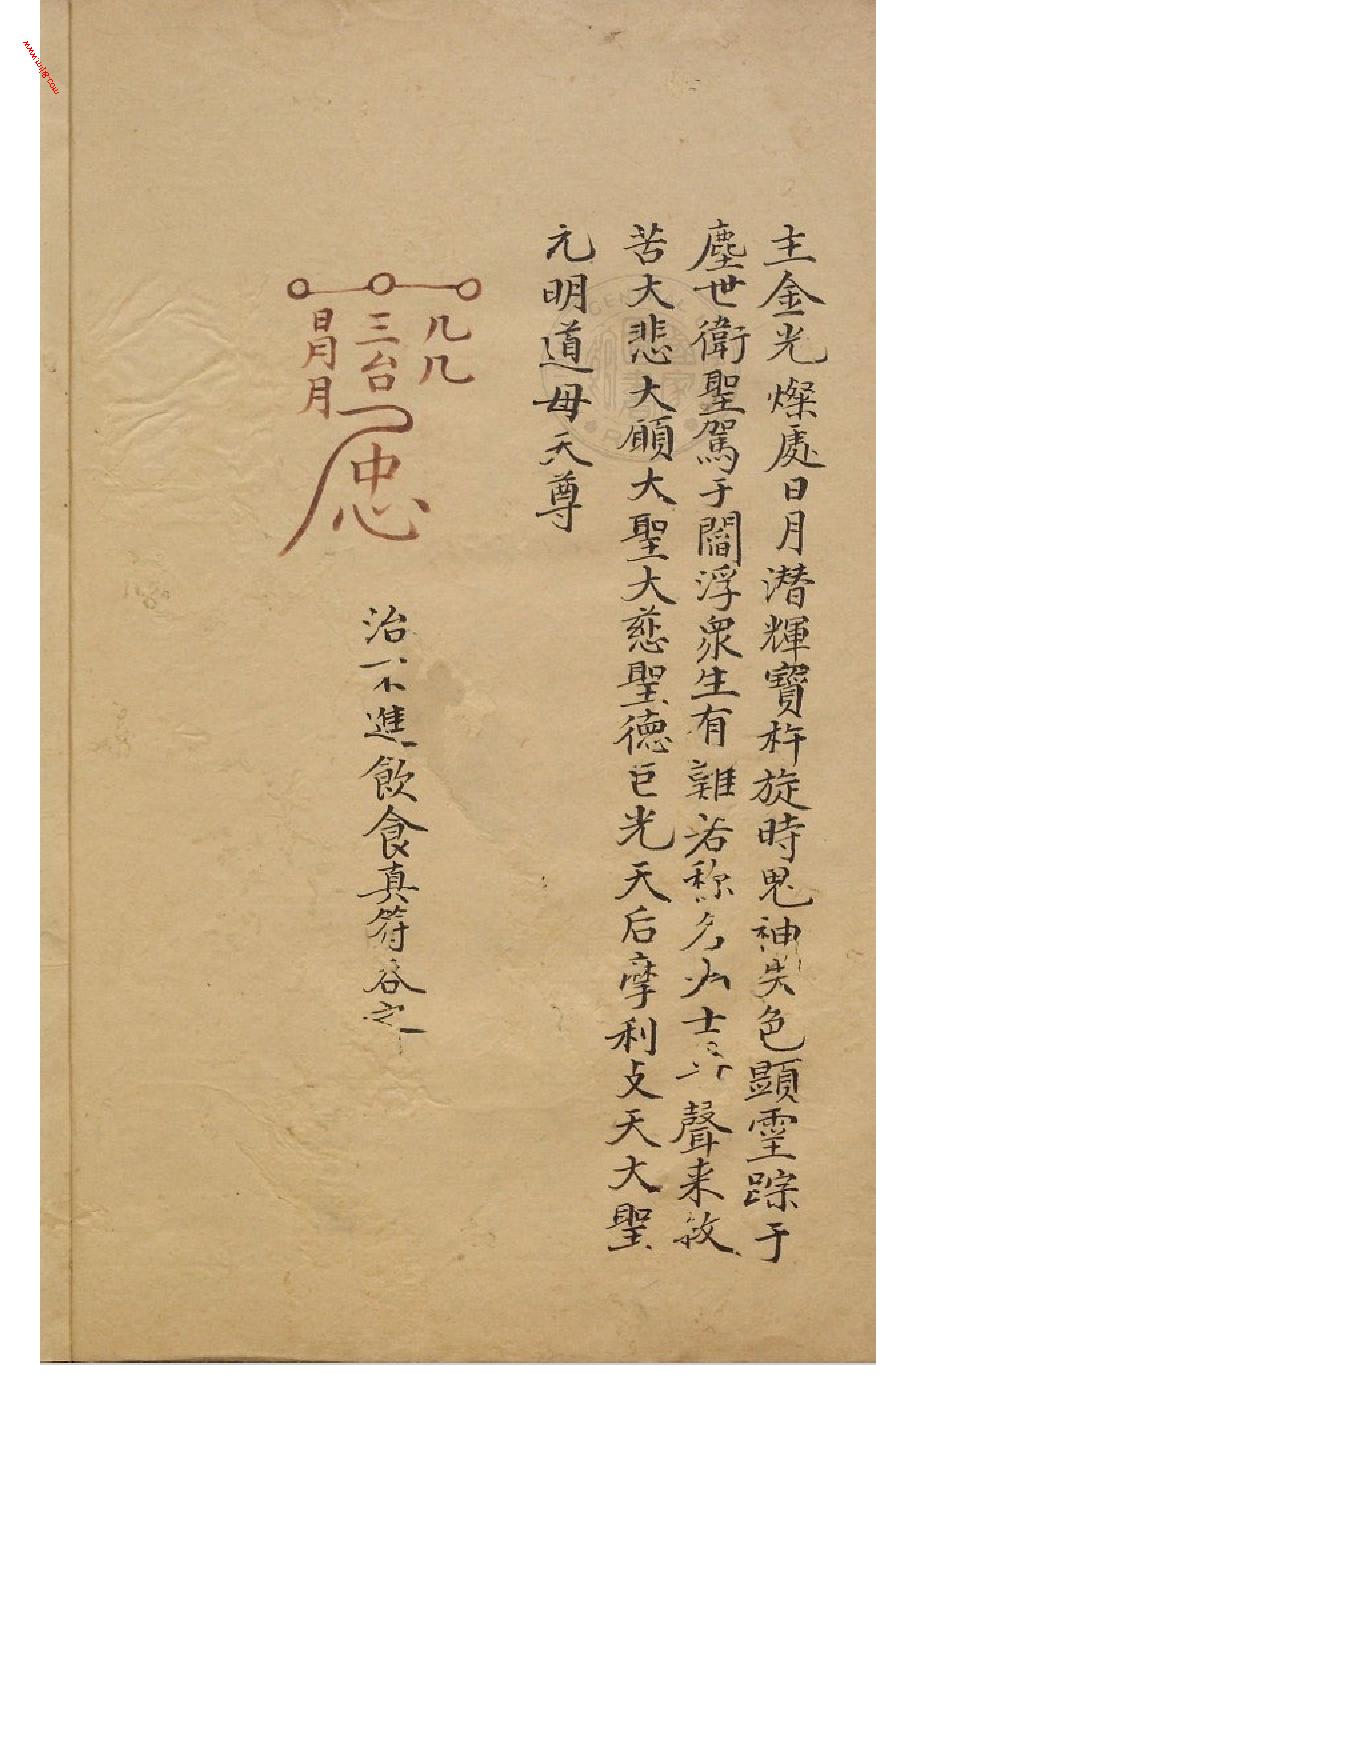 主金光燦處日月潛輝寶杵旋時鬼神失色顯霊踪于
塵世衛聖駕于閻浮衆生有難若称名大士尋聲来救
苦大悲大願大聖大慈聖德巨光天后摩利攴天大聖
元明道母天尊
几几
三台
日月月
忠
治一不進飲食真符吞之
www.mlbj8.com